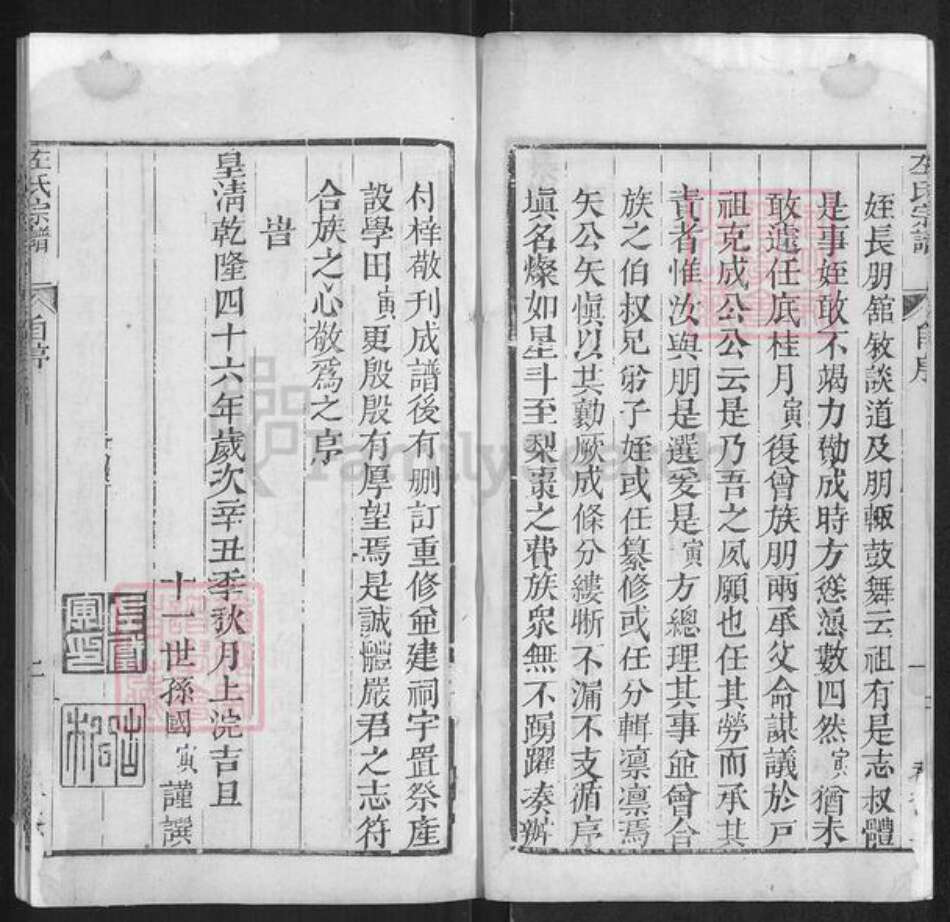 姪長朋舘敘談道及朋輒鼓舞云祖有是志叔體
是事姪敢不竭力勷成時方慫慂數四然寅猶未
敢遽任底桂月寅復會族朋兩承父命謀議於戸
祖克成公公云是乃吾之夙願也任其勞而承其
責者惟汝與朋是選爰是寅方總理其事並會合
族之伯叔兄弟子姪或任纂修或任分輯凛凛焉
矢公矢愼以共勷厥成條分縷晰不漏不支循序
塡名燦如星斗至梨棗之費族衆無不踴躍湊辦
付梓敬刊成譜後有刪訂重修並建祠宇置祭產
設學田寅更殷殷有厚望焉是誠體嚴君之志符
合族之心敬爲之序
旹
皇淸乾隆四十六年歲次辛丑季秋月上浣吉旦
十一世孫國寅謹譔
左氏宗譜
自序
左氏宗譜
自序
FamilySearch